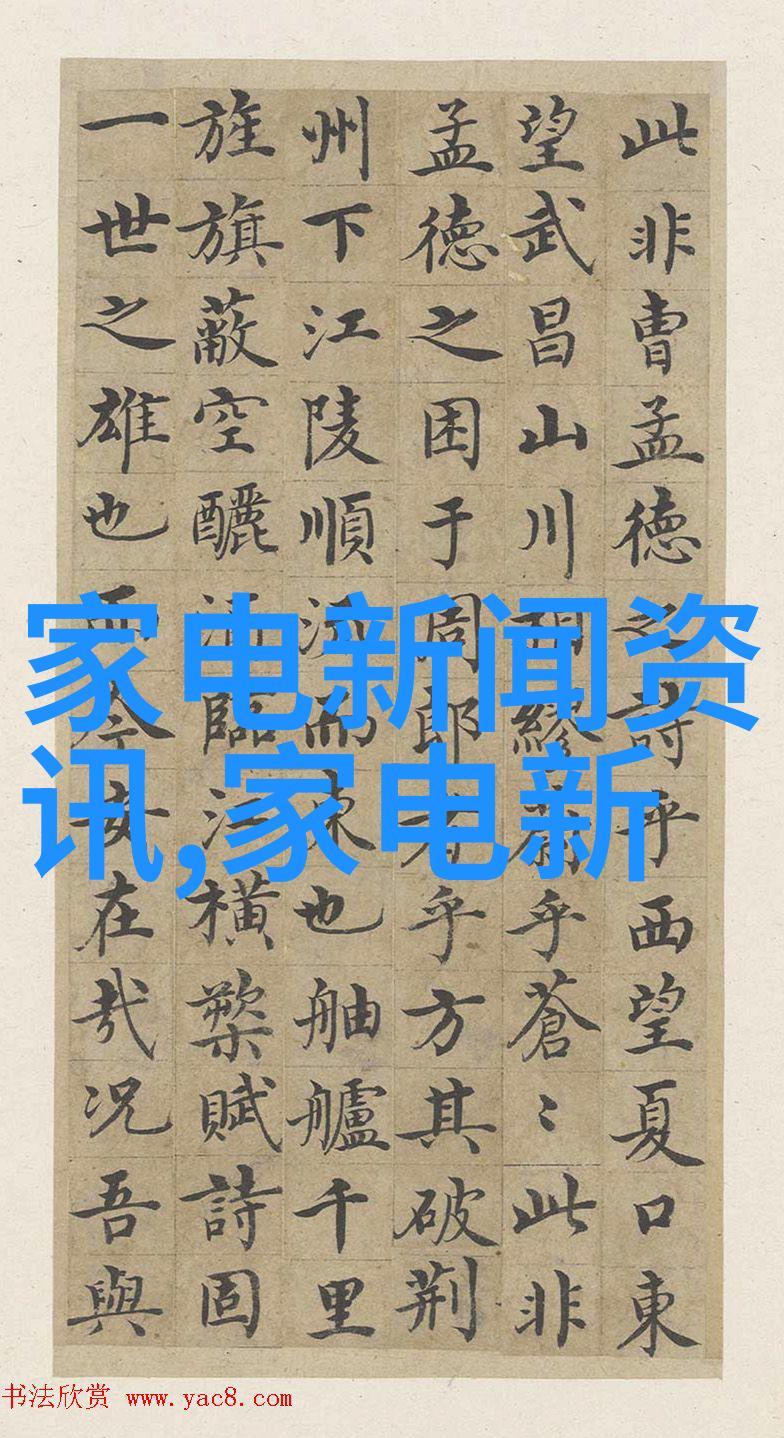 此非曹孟德之詩乎西望夏口東
望武昌山川相繆乎蒼〻此非
孟德之困于周郎者乎方其破荆
州下江陵順流而東也舳艫千里
旌旗蔽空釃酒臨江橫槊賦詩固
一世之雄也而今安在哉况吾與
家电新闻资
讯,家电新
书法欣赏 www.yac8.com